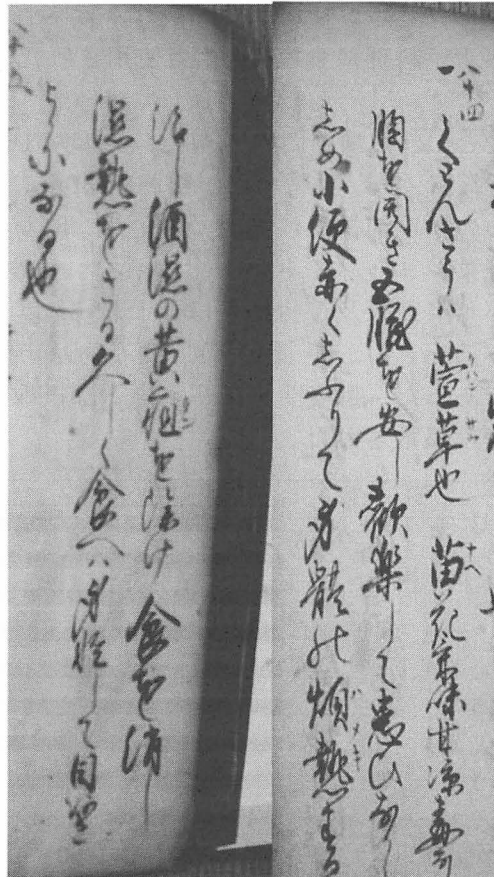 八十四
一くわんさうハ 萱草也 苗花気味甘涼毒なし
胸を開き五臓を安し歓楽して患ひなから
しめ小便赤くしふりて身體の煩熱する
治し酒湿の黄疸を除け食を消し
湿熱をさる久しく食へハ身軽して目
なる也